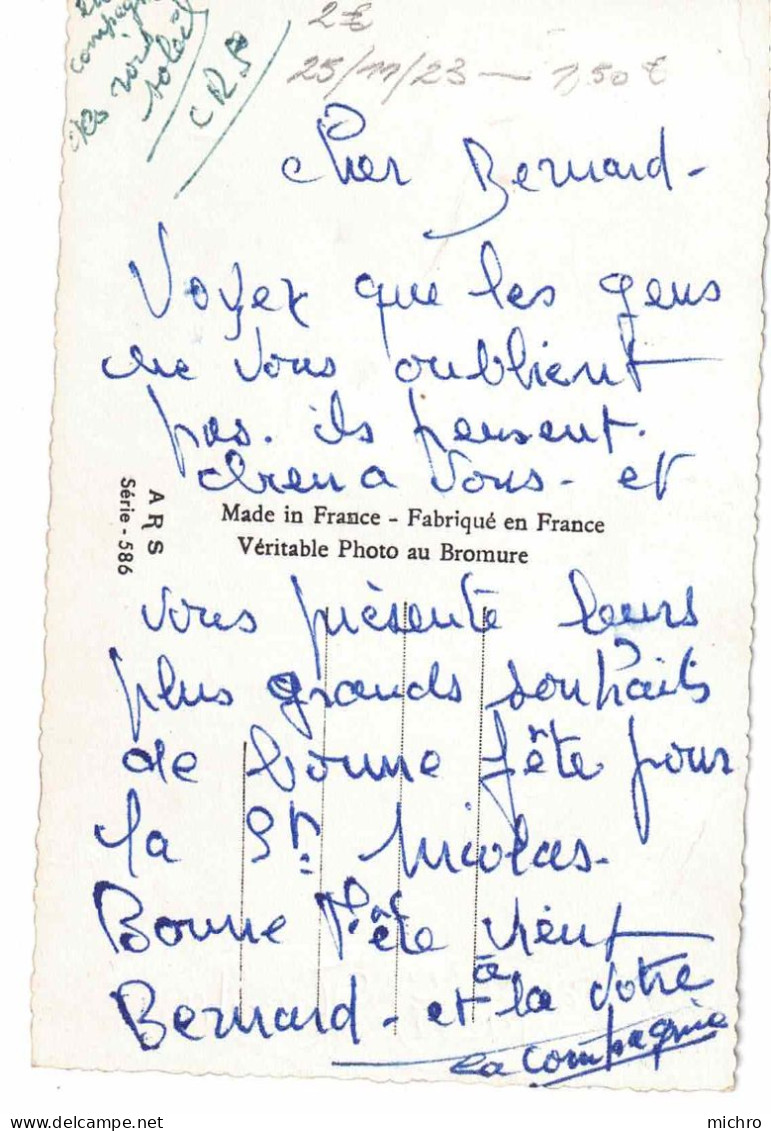 en
compagnie
des rois
soleil
CRS
2€
25/11/23 — 1,50€
Cher Bernard -
Voyez que les gens
ne vous oublient
pas. ils pensent.
bien a vous - et
ARS
Série - 586
Made in France - Fabriqué en France
Véritable Photo au Bromure
vous présente leurs
plus grands souhaits
de bonne fête pour
la St. Nicolas.
Bonne Fête vieux
Bernard - et à la votre
la compagnie
michro